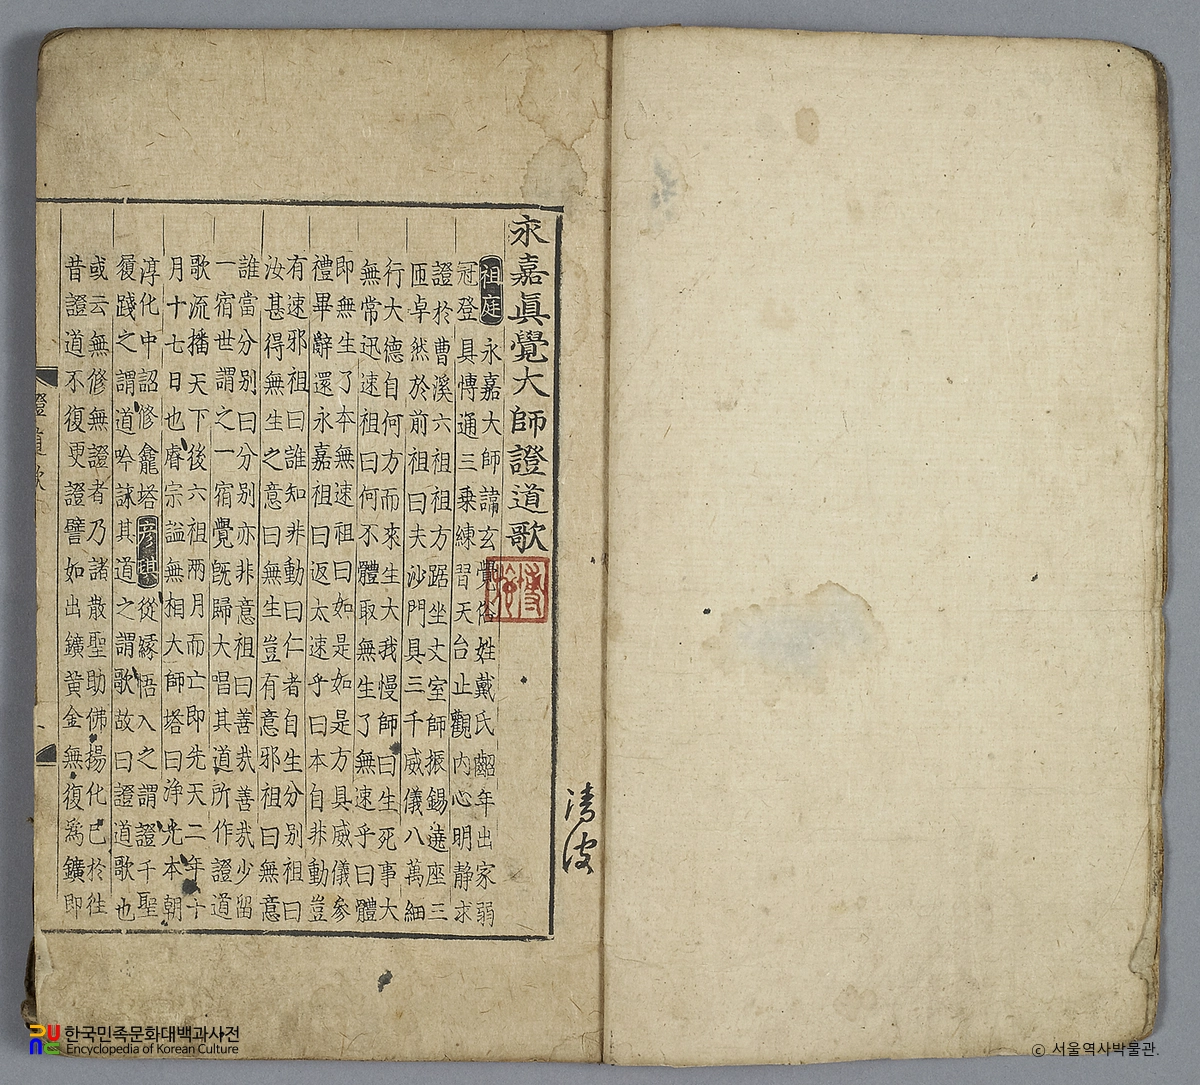 永嘉眞覺大師證道歌
祖庭 永嘉大師諱玄覺俗姓戴氏齠年出家弱
冠登具博通三乘練習天台止觀內心明静求
證於曹溪六祖祖方踞坐丈室師振錫遶座三
匝卓然於前祖曰夫沙門具三千威儀八萬細
行大德自何方而來生大我慢師曰生死事大
無常迅速祖曰何不體取無生了無速乎曰體
即無生了本無速祖曰如是如是方具威儀參
禮畢辭還永嘉祖曰返太速乎曰本自非動豈
有速邪祖曰誰知非動曰仁者自生分別祖曰
汝甚得無生之意曰無生豈有意邪祖曰無意
誰當分別曰分別亦非意祖曰善㦲善㦲少留
一宿世謂之一宿覺旣歸大唱其道所作證道
歌流播天下後六祖兩月而亡即先天二年十
月十七日也睿宗謚無相大師塔曰浄光本朝
淳化中詔修龕塔 彦琪 從緣悟入之謂證千聖
履踐之謂道吟詠其道之謂歌故曰證道歌也
或云無修無證者乃諸散聖助佛揚化已於徃
昔證道不復更證譬如出鑛黄金無復爲鑛即
證道歌
清波
한국민족문화대백과사전
Encyclopedia of Korean Culture
ⓒ 서울역사박물관.